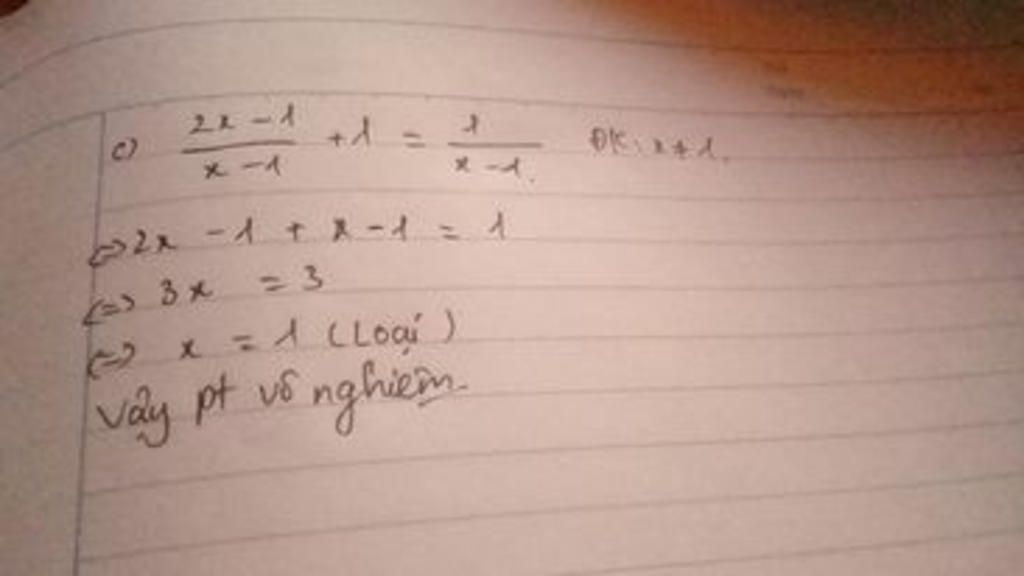 c) (2x - 1)/(x - 1) + 1 = 1/(x - 1). ĐK: x ≠ 1.
<=> 2x - 1 + x - 1 = 1
<=> 3x = 3
<=> x = 1 (Loại)
Vậy pt vô nghiệm.